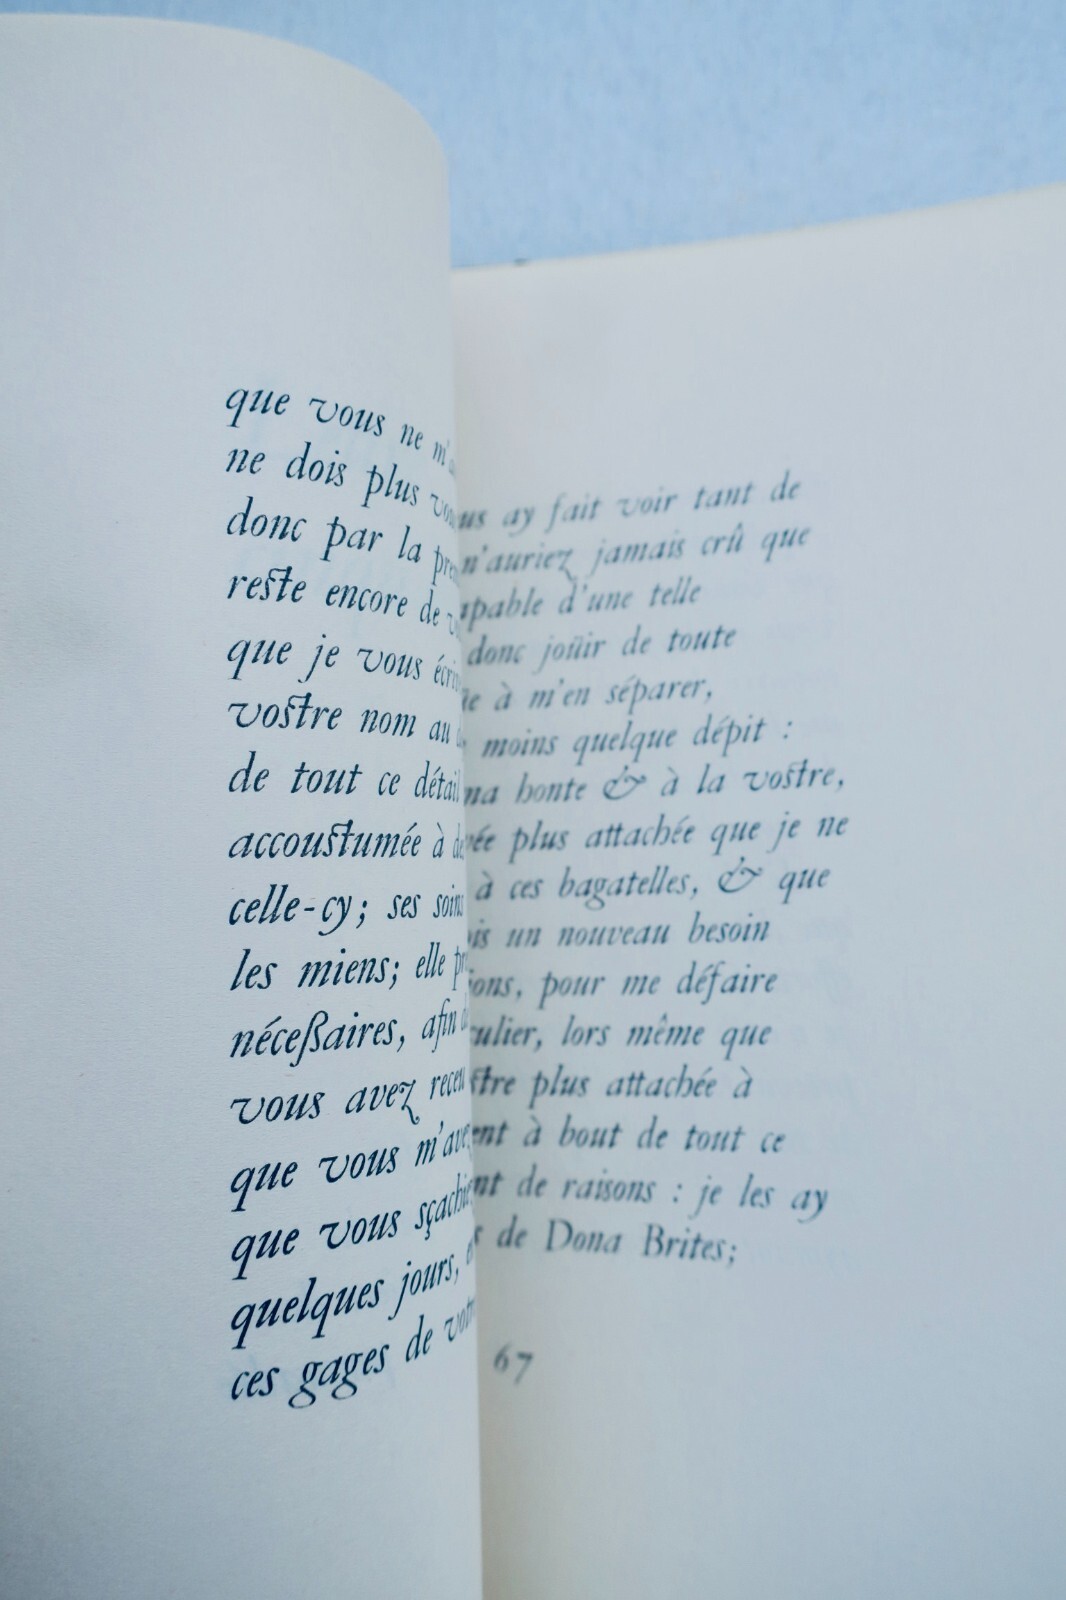 que vous ne m'a
ne dois plus vou
donc par la pre
reste encore de v
que je vous écri
vostre nom au
de tout ce détail
accoustumée à de
celle-cy; ses soins
les miens; elle pr
néceßaires, afin d
vous avez receu
que vous m'avez
que vous sçachiez
quelques jours, e
ces gages de votr
us ay fait voir tant de
n'auriez jamais crû que
apable d'une telle
donc joüir de toute
à m'en séparer,
moins quelque dépit :
ma honte & à la vostre,
ée plus attachée que je ne
à ces bagatelles, & que
is un nouveau besoin
ions, pour me défaire
culier, lors même que
stre plus attachée à
ent à bout de tout ce
nt de raisons : je les ay
s de Dona Brites;
67